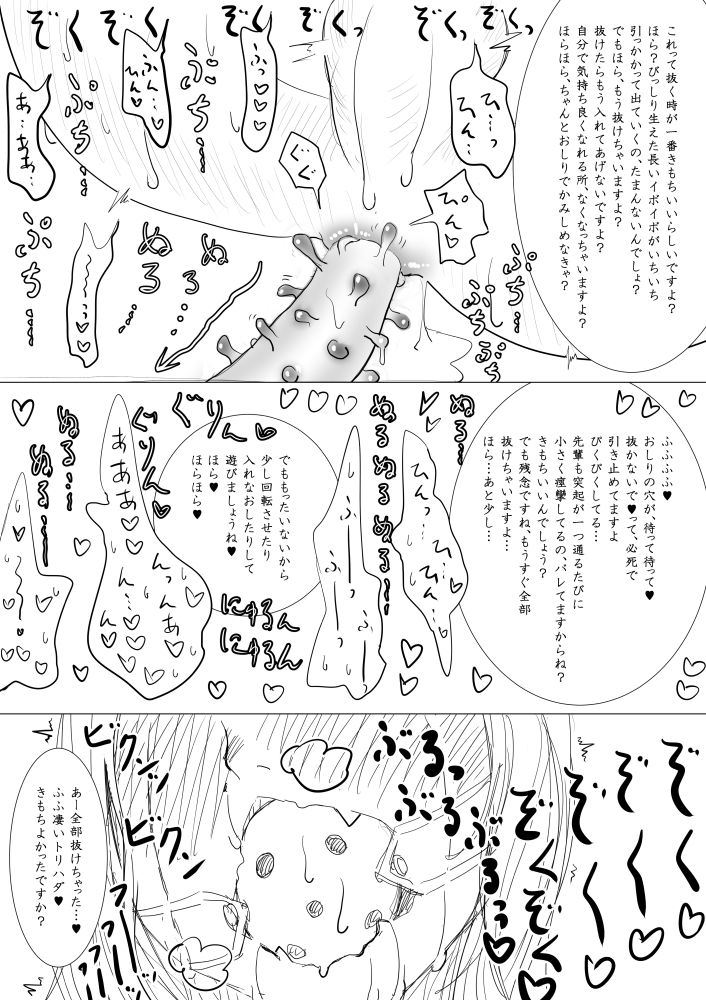 これって抜く時が一番きもちいいらしいですよ?
ほら?びっしり生えた長いイボイボがいちいち
引っかかって出ていくの、たまんないんでしょ?
でもほら、もう抜けちゃいますよ?
抜けたらもう入れてあげないですよ?
自分で気持ち良くなれる所、なくなっちゃいますよ?
ほらほら、ちゃんとおしりでかみしめなきゃ?
ぞくっ
ぞくっ
ぞくっ
ぞくっ
ひ…っ
ひん…
ぴん♡
ぐぐ
ふっ♡♡♡
ふん…
ひん♡
あ…ああ…
ぷち…
ぷち…
ぷち…
ぷちぷち
ぬる…
ぬる…
〜〜っ♡♡
ふふふふ♥
おしりの穴が、待って待って♥
抜かないで♥って、必死で
引き止めてますよ
びくびくしてる…
先輩も突起が一つ通るたびに
小さく痙攣してるの、バレてますからね?
きもちいいんでしょう?
でも残念ですね、もうすぐ全部
抜けちゃいますよ…
ほら…あと少し…
ぬる…
ぬる…ぬる…
ひんっ
ひ…ん…
ふーっふーっ
でももったいないから
少し回転させたり
入れなおしたりして
遊びましょうね♥
ほら♥
ほらほら♥
ぐりん♥
ぐりん♥
にゅるん
にゅるん
あああ♡♡
んっんあ♡
ん…♡
ぬる…
ぬる…
〜〜っ♡
ぞ〜く〜っ♡
ぞ〜く〜っ♡
ぞくぞくっ♡
ぶるっ
ぶるぶるっ♡
ビクンッ
ビクン
あー全部抜けちゃった…♥
ふふ凄いトリハダ♥
きもちよかったですか?